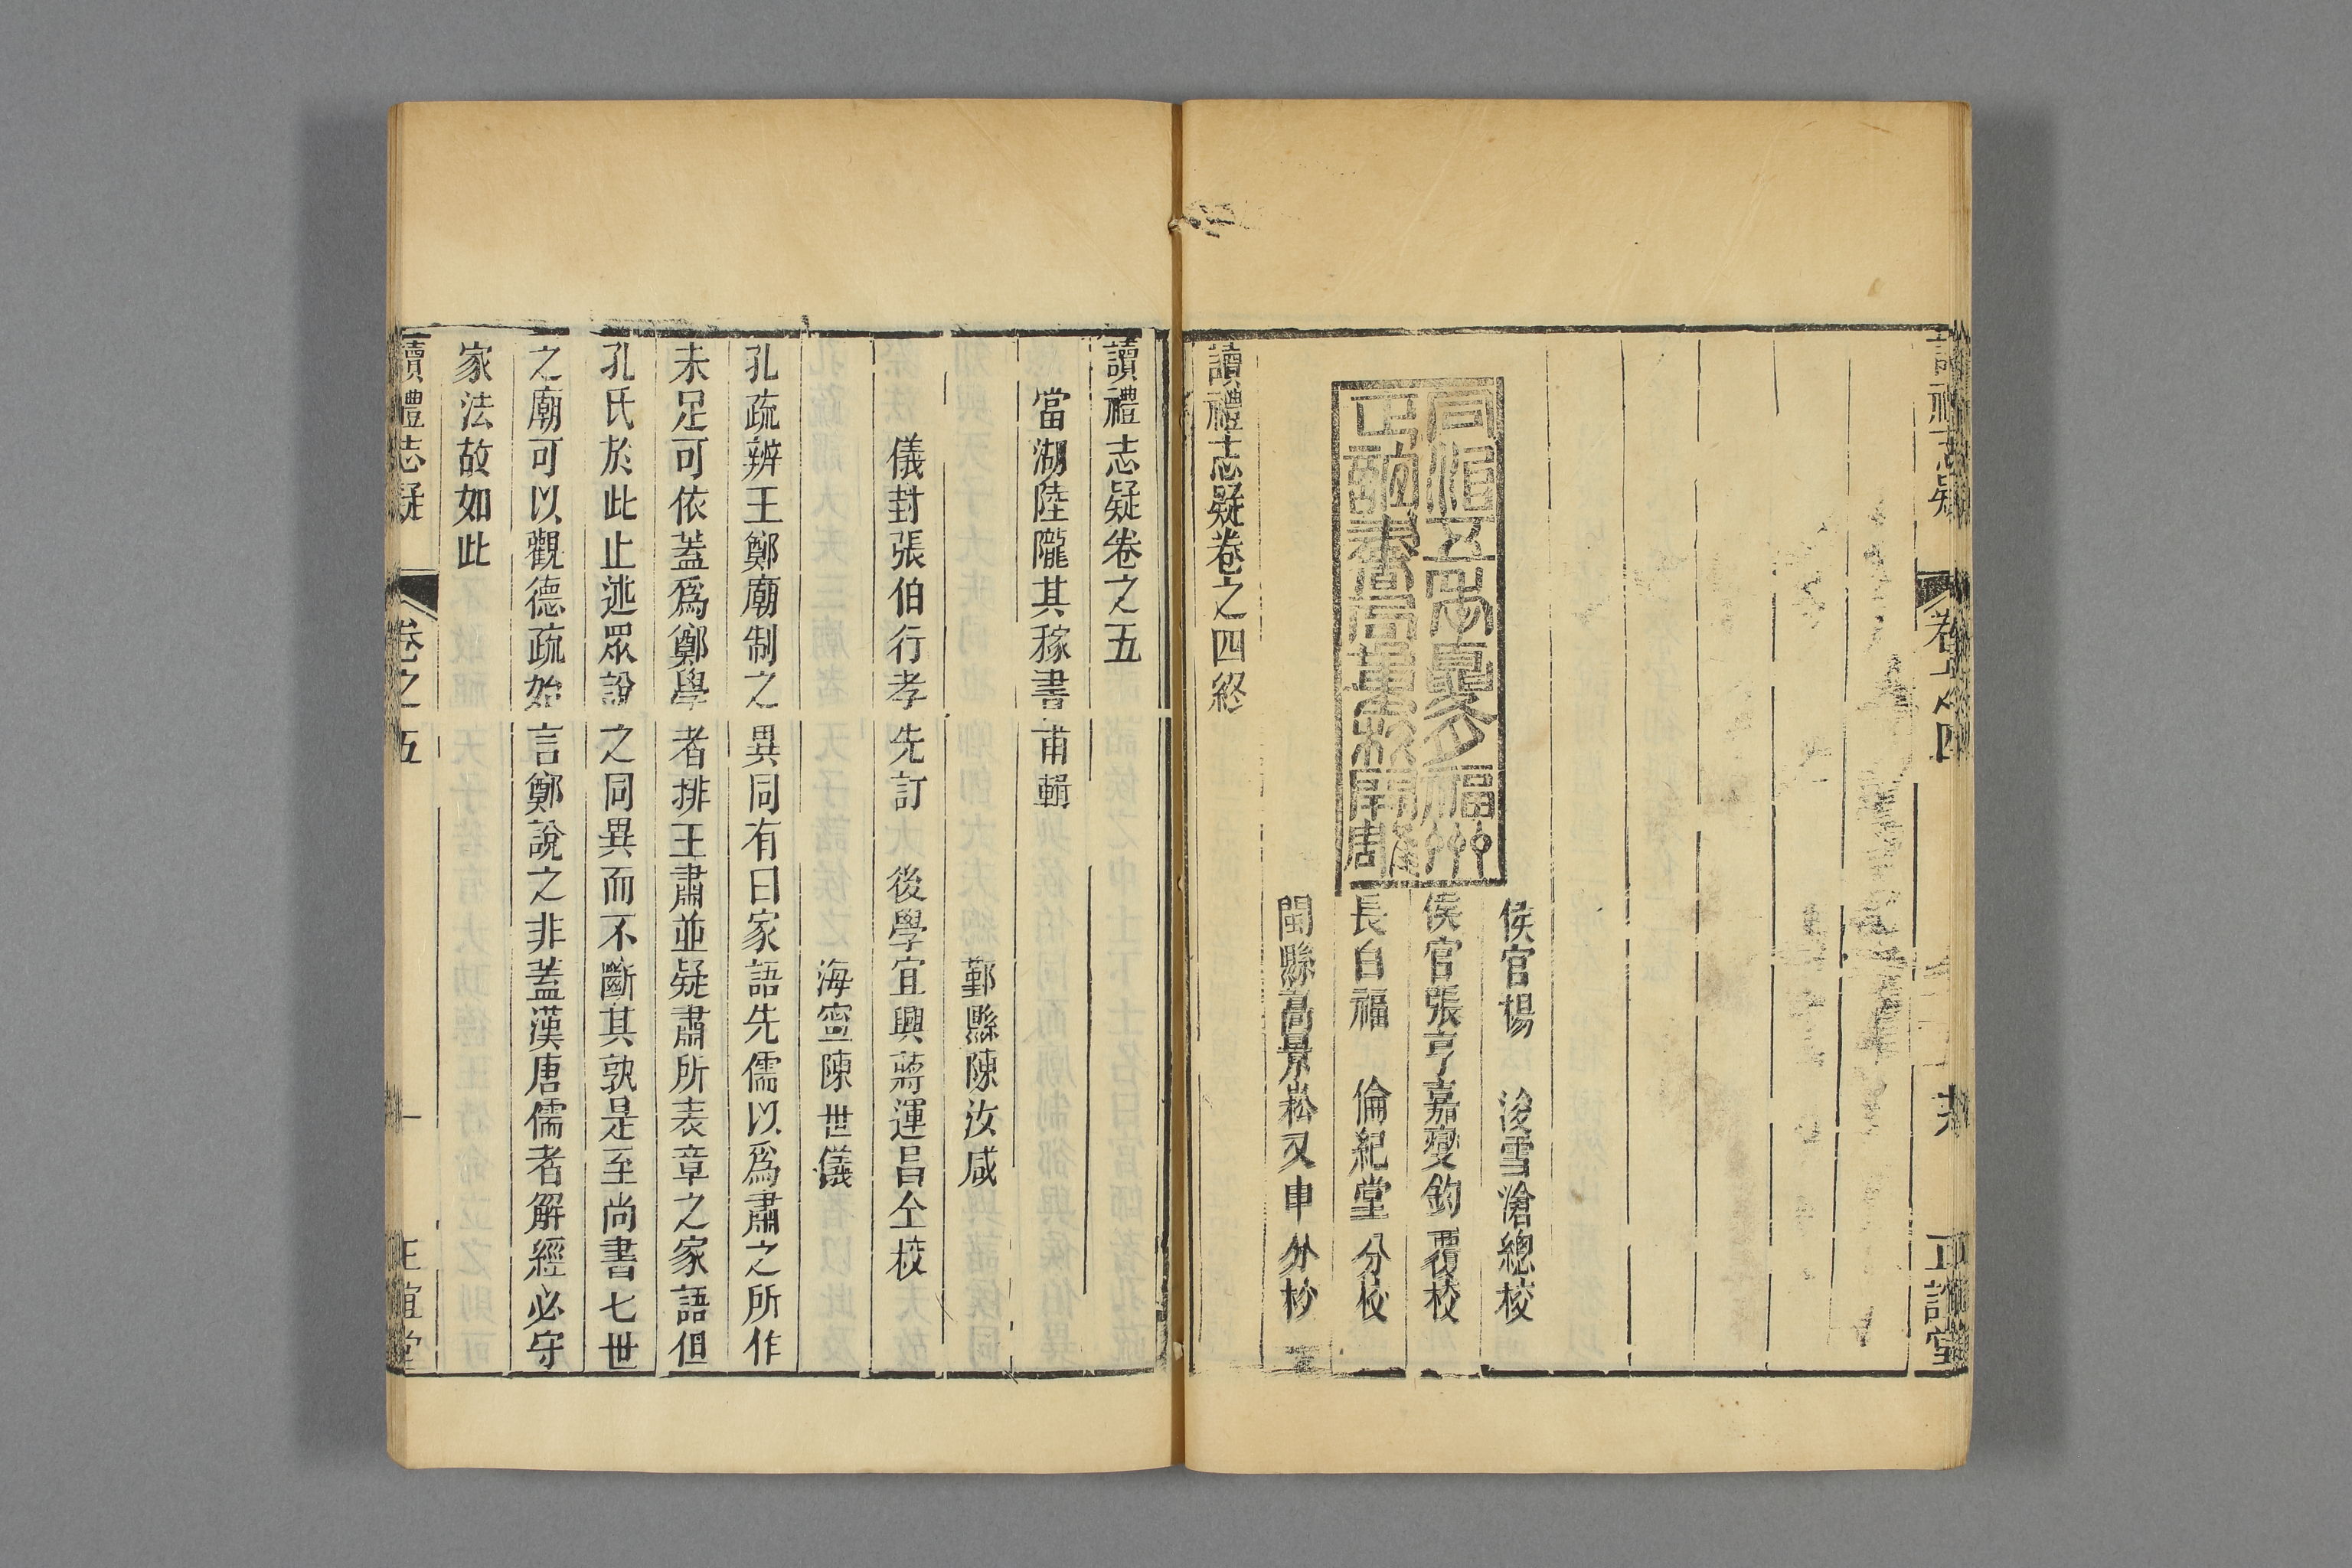 讀禮志疑
卷之四
正誼堂
侯官楊 浚雪滄總校
侯官張亨嘉燮鈞覆校
長白福 倫紀堂分校
閩縣高景崧又申分校
同治五年夏月福州
正誼書局重校開雕
讀禮志疑卷之四終
讀禮志疑卷之五
當湖陸隴其稼書甫輯
鄞縣陳汝咸
儀封張伯行孝先訂 後學宜興蔣運昌仝校
海寧陳世儀
孔疏辨王鄭廟制之異同有曰家語先儒以爲肅之所作
未足可依蓋爲鄭學者排王肅並疑肅所表章之家語但
孔氏於此止述眾說之同異而不斷其孰是至尚書七世
之廟可以觀德疏始言鄭說之非蓋漢唐儒者解經必守
家法故如此
讀禮志疑
卷之五
一
正誼堂